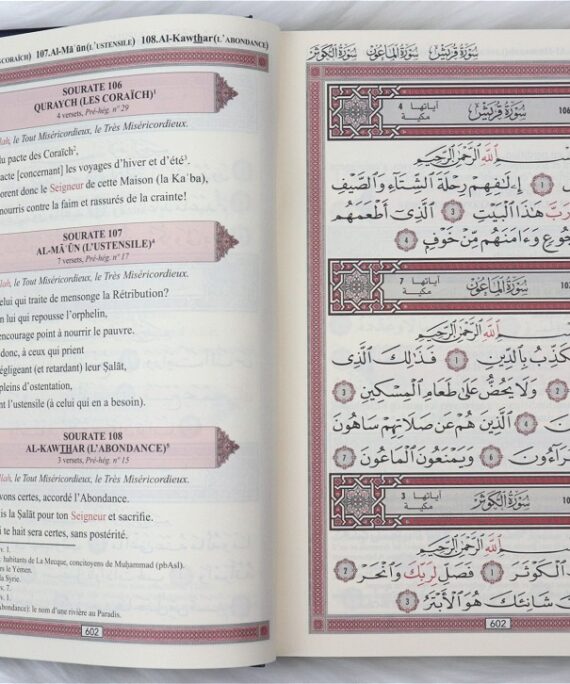 CORAÏCH) 107.Al-Mā ūn(L'USTENSILE) 108.Al-Kawthar(L'ABONDANCE)
SOURATE 106
QURAYCH (LES CORAÏCH)¹
4 versets, Pré-hég. n° 29
le Tout Miséricordieux, le Très Miséricordieux.
du pacte des Coraïch²,
pacte [concernant] les voyages d'hiver et d'été³.
donc le Seigneur de cette Maison (la Kaʿba),
nourris contre la faim et rassurés de la crainte!
SOURATE 107
AL-MĀʿŪN (L'USTENSILE)⁴
7 versets, Pré-hég. n° 17
le Tout Miséricordieux, le Très Miséricordieux.
celui qui traite de mensonge la Rétribution?
lui qui repousse l'orphelin,
encourage point à nourrir le pauvre.
donc, à ceux qui prient
(et retardant) leur Ṣalāt,
pleins d'ostentation,
l'ustensile (à celui qui en a besoin).
SOURATE 108
AL-KAWTHAR (L'ABONDANCE)⁵
3 versets, Pré-hég. n° 15
le Tout Miséricordieux, le Très Miséricordieux.
certes, accordé l'Abondance.
la Ṣalāt pour ton Seigneur et sacrifie.
te hait sera certes, sans postérité.
v. 1.
habitants de La Mecque, concitoyens de Muḥammad (pbAsl).
le Yémen.
la Syrie.
v. 7.
v. 1.
le nom d'une rivière au Paradis.
602
سورة قريش سورة الماعون سورة الكوثر
سورة قريش آياتها 4 مكية
اللَّهِ الرَّحْمَٰنِ الرَّحِيمِ
١ إِۦلَٰفِهِمْ رِحْلَةَ ٱلشِّتَآءِ وَٱلصَّيْفِ
رَبَّ هَٰذَا ٱلْبَيْتِ ٣ ٱلَّذِىٓ أَطْعَمَهُم
جُوعٍ وَءَامَنَهُم مِّنْ خَوْفٍۭ ٤
سورة الماعون آياتها 7 مكية
اللَّهِ الرَّحْمَٰنِ الرَّحِيمِ
يُكَذِّبُ بِٱلدِّينِ ١ فَذَٰلِكَ ٱلَّذِى
٢ وَلَا يَحُضُّ عَلَىٰ طَعَامِ ٱلْمِسْكِينِ ٣
٤ ٱلَّذِينَ هُمْ عَن صَلَاتِهِمْ سَاهُونَ
يُرَآءُونَ ٦ وَيَمْنَعُونَ ٱلْمَاعُونَ ٧
سورة الكوثر آياتها 3 مكية
اللَّهِ الرَّحْمَٰنِ الرَّحِيمِ
ٱلْكَوْثَرَ ١ فَصَلِّ لِرَبِّكَ وَٱنْحَرْ ٢
شَانِئَكَ هُوَ ٱلْأَبْتَرُ ٣
602